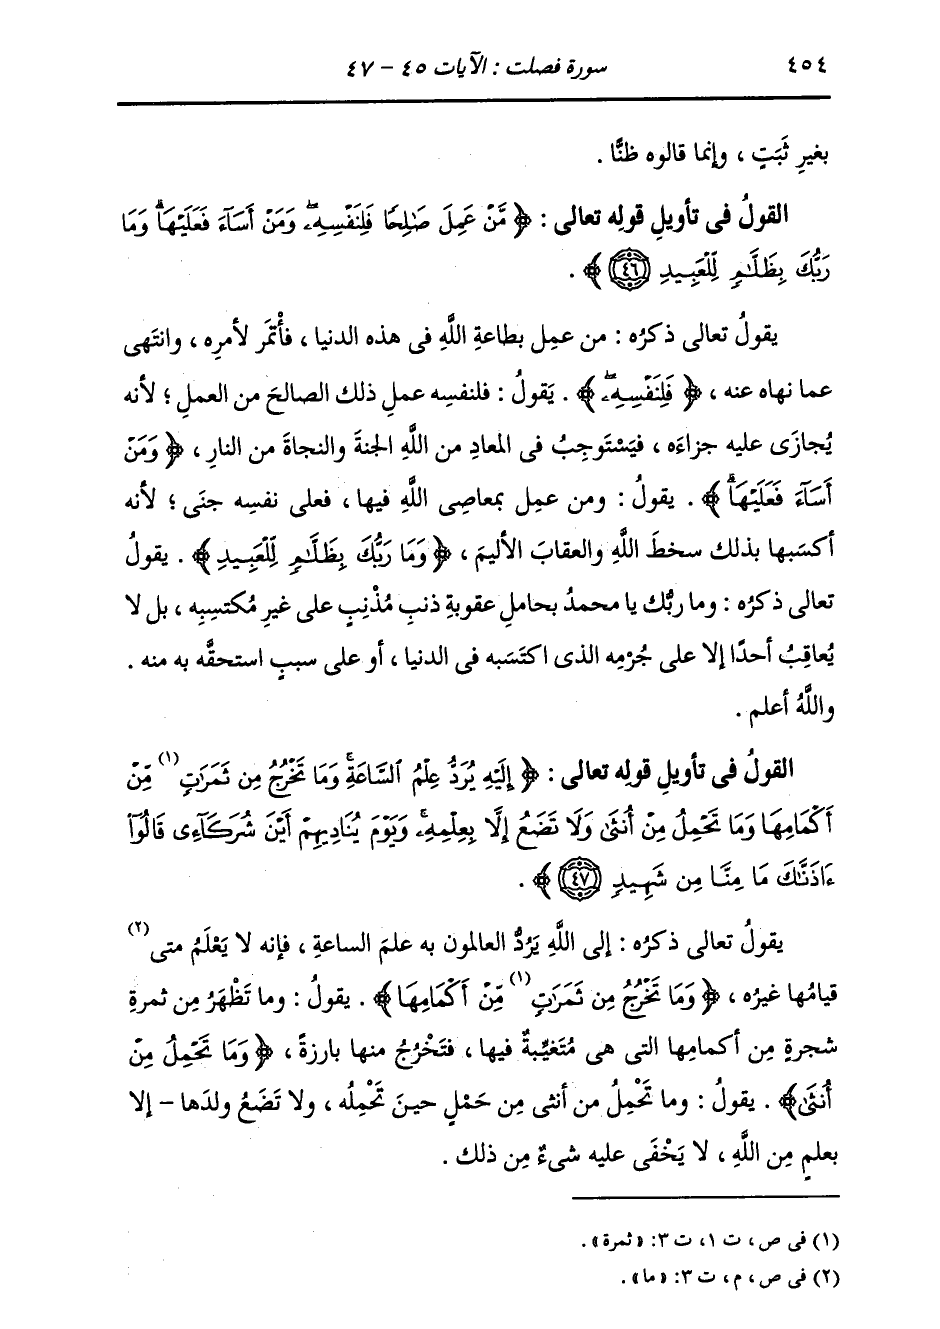 ٤٥٤ سورة فصلت : الآيات ٤٥ - ٤٧
بغيرِ ثَبَتٍ ، وإنما قالوه ظنًّا .
القولُ فى تأويلِ قولِه تعالى : ﴿ مَّنْ عَمِلَ صَٰلِحًا فَلِنَفْسِهِۦۖ وَمَنْ أَسَآءَ فَعَلَيْهَاۗ وَمَا
رَبُّكَ بِظَلَّٰمٍ لِّلْعَبِيدِ ٤٦ ﴾ .
يقولُ تعالى ذكرُه : من عمِل بطاعةِ اللَّهِ فى هذه الدنيا ، فأْتمَر لأمرِه ، وانتَهى
عما نهاه عنه ، ﴿ فَلِنَفْسِهِۦۖ ﴾ . يَقولُ : فلنفسِه عمِل ذلك الصالحَ من العملِ ؛ لأنه
يُجازَى عليه جزاءَه ، فيَسْتوجِبُ فى المعادِ من اللَّهِ الجنةَ والنجاةَ من النارِ ، ﴿ وَمَنْ
أَسَآءَ فَعَلَيْهَاۗ ﴾ . يقولُ : ومن عمِل بمعاصِى اللَّهِ فيها ، فعلى نفسِه جنَى ؛ لأنه
أكسَبها بذلك سخطَ اللَّهِ والعقابَ الأليمَ ، ﴿ وَمَا رَبُّكَ بِظَلَّٰمٍ لِّلْعَبِيدِ ﴾ . يقولُ
تعالى ذكرُه : وما ربُّك يا محمدُ بحاملِ عقوبةِ ذنبِ مُذْنِبٍ على غيرِ مُكتسِبِه ، بل لا
يُعاقِبُ أحدًا إلا على جُرْمِه الذى اكتَسَبه فى الدنيا ، أو على سببٍ استحقَّه به منه .
واللَّهُ أعلم .
القولُ فى تأويلِ قولِه تعالى : ﴿ إِلَيْهِ يُرَدُّ عِلْمُ ٱلسَّاعَةِۚ وَمَا تَخْرُجُ مِن ثَمَرَٰتٍ(١) مِّنْ
أَكْمَامِهَا وَمَا تَحْمِلُ مِنْ أُنثَىٰ وَلَا تَضَعُ إِلَّا بِعِلْمِهِۦۚ وَيَوْمَ يُنَادِيهِمْ أَيْنَ شُرَكَآءِى قَالُوٓا۟
ءَاذَنَّٰكَ مَا مِنَّا مِن شَهِيدٍ ٤٧ ﴾ .
يقولُ تعالى ذكرُه : إلى اللَّهِ يَرُدُّ العالمون به علمَ الساعةِ ، فإنه لا يَعْلَمُ متى(٢)
قيامُها غيرُه ، ﴿ وَمَا تَخْرُجُ مِن ثَمَرَٰتٍ(١) مِّنْ أَكْمَامِهَا ﴾ . يقولُ : وما تَظْهَرُ مِن ثمرةِ
شجرةٍ مِن أكمامِها التى هى مُتَغيِّبةٌ فيها ، فتَخْرُجُ منها بارزةً ، ﴿ وَمَا تَحْمِلُ مِنْ
أُنثَىٰ ﴾ . يقولُ : وما تَحْمِلُ من أنثى مِن حَمْلٍ حينَ تَحْمِلُه ، ولا تَضَعُ ولدَها - إلا
بعلمٍ مِن اللَّهِ ، لا يَخْفَى عليه شىءٌ مِن ذلك .
(١) فى ص، ت ١، ت ٣: «ثمرة».
(٢) فى ص، م، ت ٣: «ما».